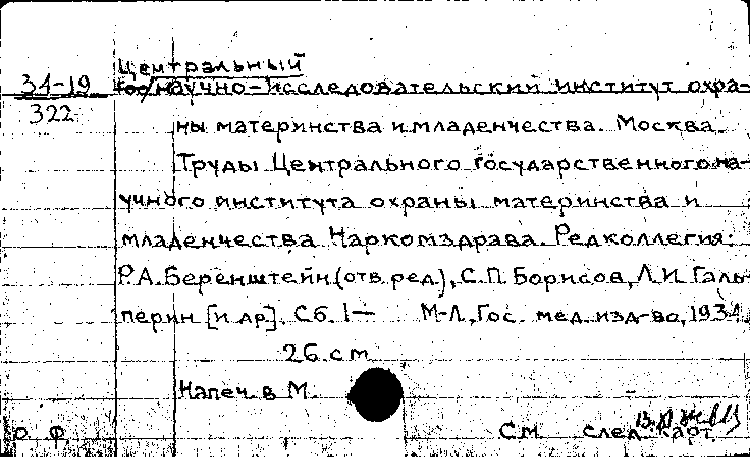 Центральный
34-19 Гос/научно-исследовательский институт охра-
322
ны материнства и младенчества. Москва.
Труды Центрального государственного на-
учного института охраны материнства и
младенчества Наркомздрава. Редколлегия:
Р.А. Беренштейн (отв. ред.), С.П. Борисов, Л.И. Галь-
перин [и др]. Сб. 1— М-Л, Гос. мед. изд-во, 1934.
26 см
Напеч. в М.
О. Ф. См. след. карт.